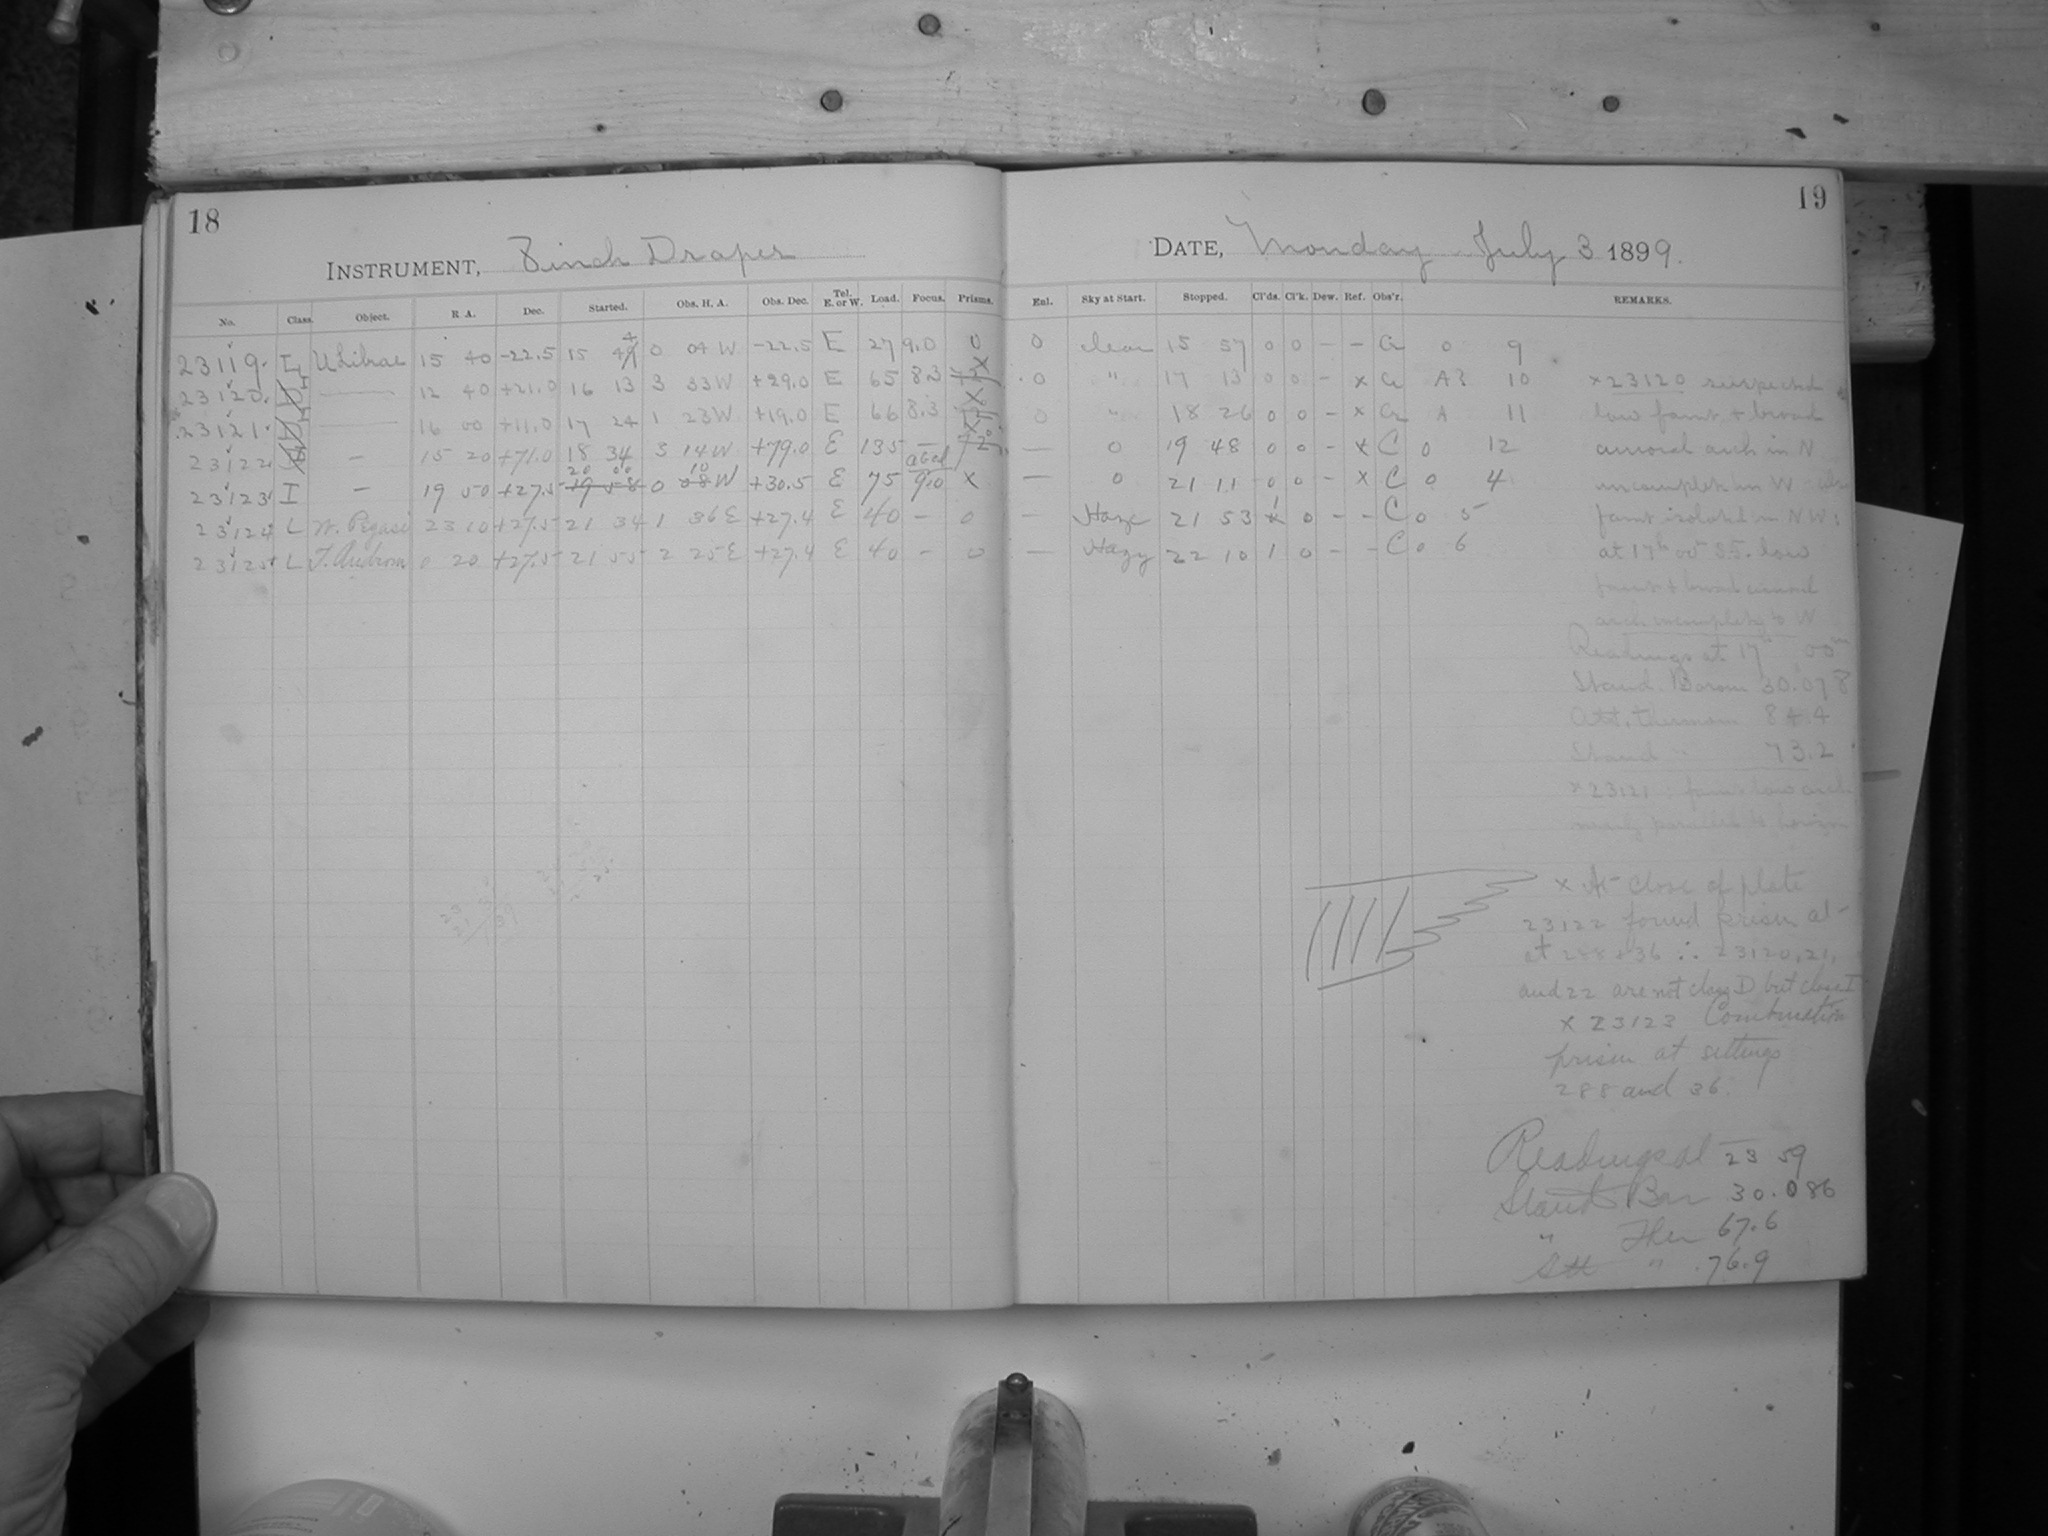 18
INSTRUMENT, 8 inch Draper
No. Class. Object. R A. Dec. Started. Obs. H. A. Obs. Dec. Tel. E. or W. Load. Focus. Prisms.
23119. L U Librae 15 40 -22.5 15 49 4 0 04 W -22.5 E 27 9.0 0
23120. D I — 12 40 +21.0 16 13 3 33 W +29.0 E 65 8.3 X
23121. D I — 16 00 +11.0 17 24 1 23 W +19.0 E 66 8.3 X
23122 — 15 20 +71.0 18 34 3 14 W +79.0 E 135 —
23123 I — 19 50 +27.5 19 58 20 00 0 08 10 W +30.5 E 75 9.0 X
23124 L W. Pegasi 23 10 +27.5 21 34 1 36 E +27.4 E 40 — 0
23125 L T. Androm 0 20 +27.5 21 55 2 25 E +27.4 E 40 — 0
19
DATE, Monday July 3 1899.
Enl. Sky at Start. Stopped. Cl'ds. Cl'k. Dew. Ref. Obs'r. REMARKS.
0 clear 15 57 0 0 — — Cr 0 9
0 " 17 13 0 0 — x Cr A? 10
0 " 18 26 0 0 — x Cr A 11
— 0 19 48 0 0 — x C 0 12
— 0 21 11 0 0 — x C 0 4
— Haze 21 53 x 1 0 — — C 0 5
— Hazy 22 10 1 0 — — C 0 6
x 23120 suspected
low faint & broad
auroral arch in N
incomplete in W
faint isolated in NW;
at 17h 00m S5. low
faint & broad auroral
arch incomplete to W
Readings at 17h 00m
Stand. Barom 30.078
Att. Thermom 84.4
Stand " 73.2
x 23121 : faint low arch
nearly parallel to horizon
x At close of plate
23122 found prism at
at 288 & 36 ∴ 23120, 21,
and 22 are not class D but class I
x 23123 Combination
prism at settings
288 and 36.
Readings at 23 59
Stand Bar 30.086
" Ther 67.6
Att " 76.9